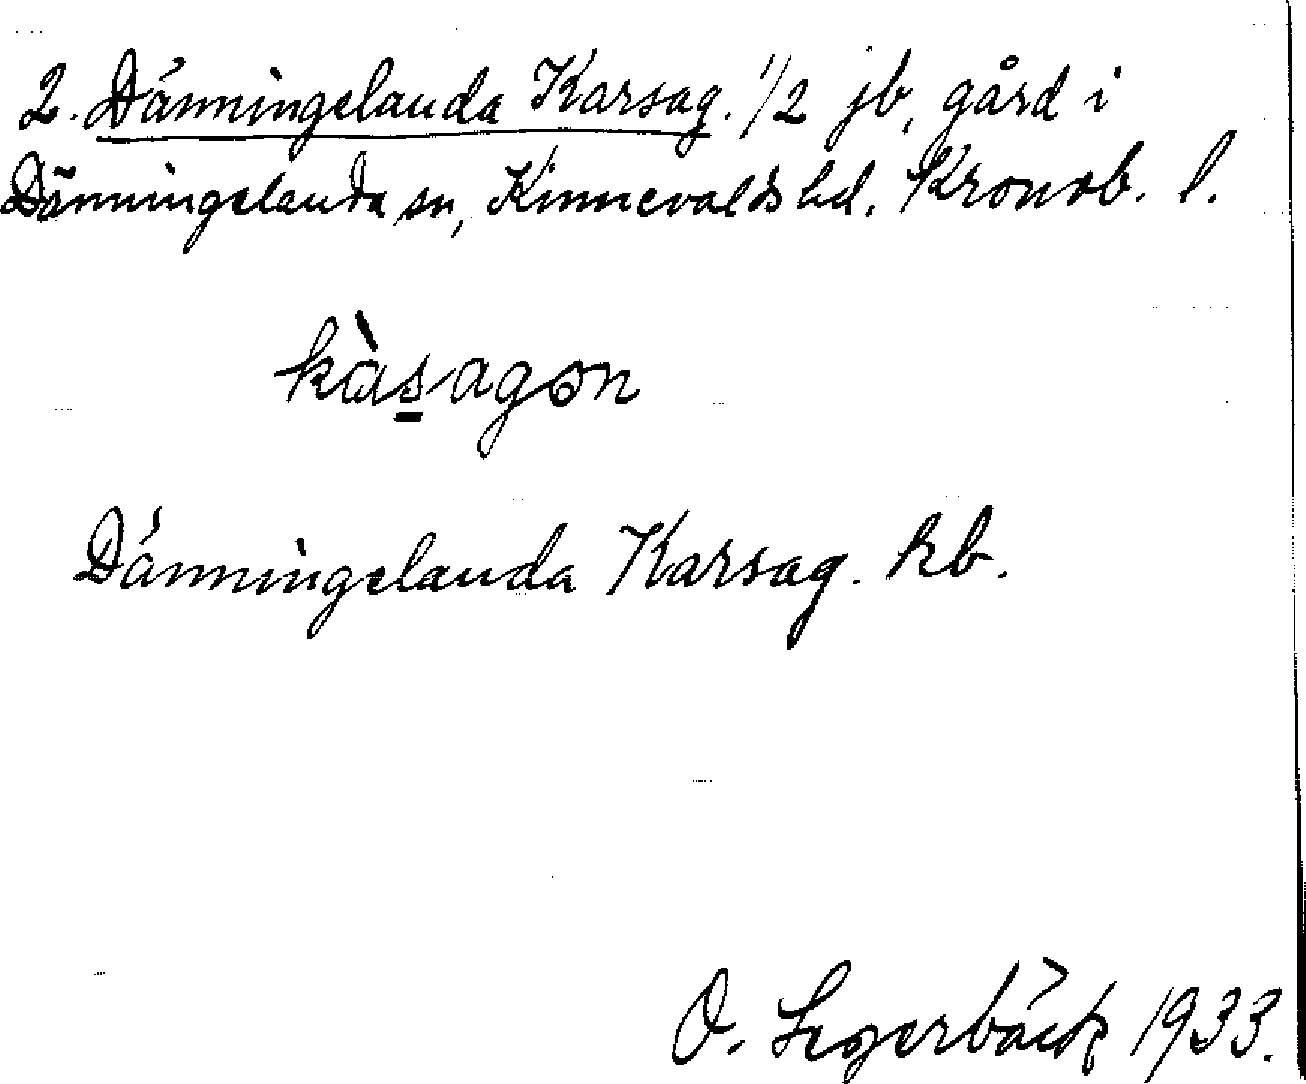 2. Dänningelanda Karsag. 1/2 jb, gård i
Dänningelanda sn, Kinnevalds hd. Kronob. l.
kàs̲agon
Dänningelanda Karsag. kb.
O. Segerbäck 1933.